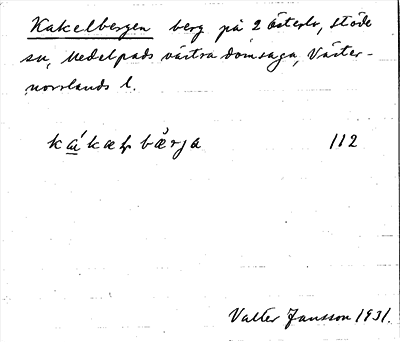 Kakelbergen berg på 2 Österlo, Stöde
sn, Medelpads västra domsaga, Väster-
norrlands l.
kákæƚ bæ̀rja 112
Valter Jansson 1931.